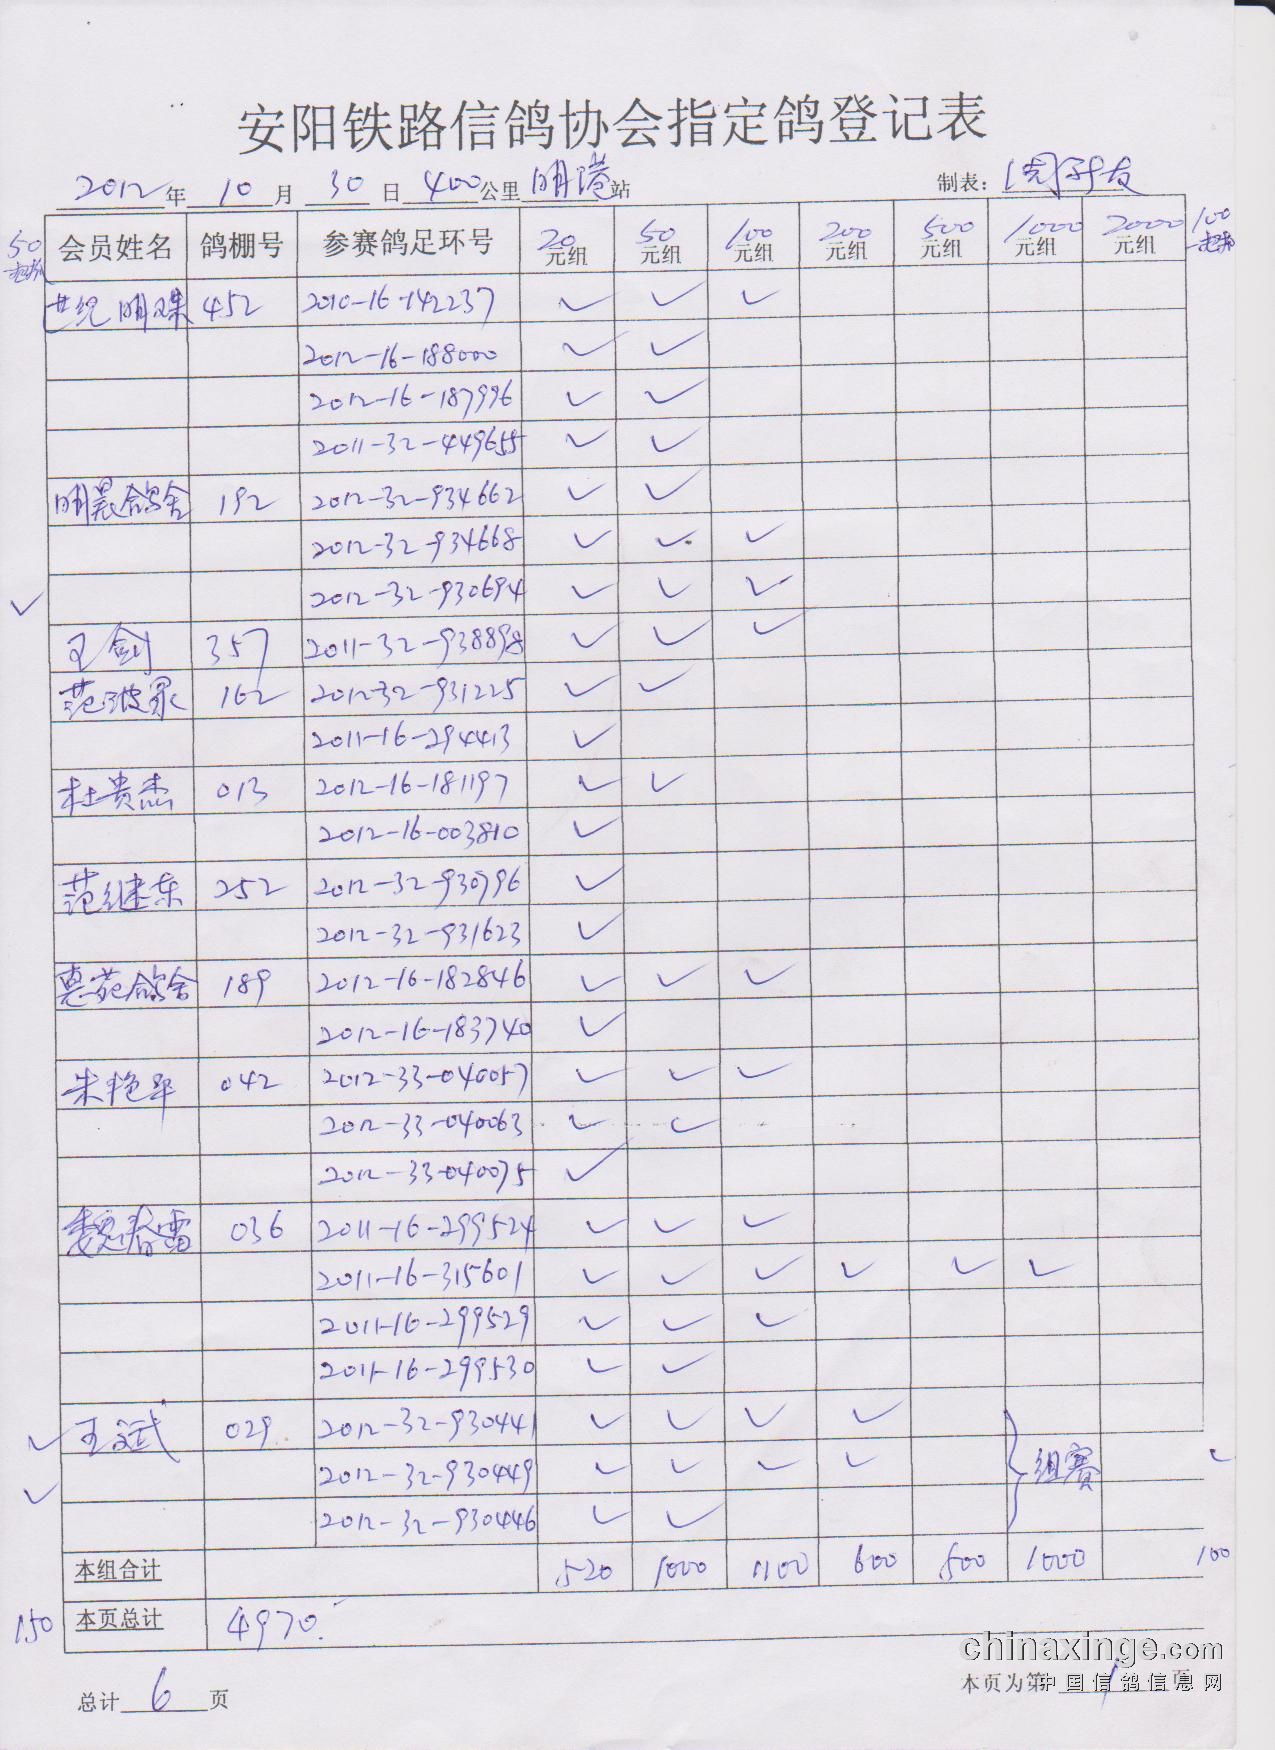 安阳铁路信鸽协会指定鸽登记表
2012年 10月 30日 400公里 明港站 制表:
50 会员姓名 鸽棚号 参赛鸽足环号 20元组 50元组 100元组 200元组 500元组 1000元组 2000元组 100
世纪明珠 452 2010-16-142237 ✓ ✓ ✓
2012-16-188000 ✓ ✓
2012-16-187996 ✓ ✓
2011-32-449655 ✓ ✓
明晨鸽舍 192 2012-32-934662 ✓ ✓
2012-32-934668 ✓ ✓ ✓
✓ 2012-32-930694 ✓ ✓ ✓
王剑 357 2011-32-938898 ✓ ✓ ✓
162 2012-32-931225 ✓ ✓
2011-16-294413 ✓
杜贵杰 013 2012-16-181197 ✓ ✓
2012-16-003810 ✓
范继东 252 2012-32-930796 ✓
2012-32-931623 ✓
惠苑鸽舍 189 2012-16-182846 ✓ ✓ ✓
2012-16-183740 ✓
朱艳平 042 2012-33-040057 ✓ ✓ ✓
2012-33-040063 ✓ ✓
2012-33-040075 ✓
魏春雷 036 2011-16-299524 ✓ ✓ ✓
2011-16-315601 ✓ ✓ ✓ ✓ ✓ ✓
2011-16-299529 ✓ ✓ ✓
2011-16-299530 ✓ ✓
✓ 王文斌 029 2012-32-930441 ✓ ✓ ✓ ✓
✓ 2012-32-930449 ✓ ✓ ✓ ✓ 组赛 ✓
2012-32-930446 ✓ ✓
本组合计 520 1000 1100 600 500 1000 100
150 本页总计 4970.
chinaxinge.com
总计 6 页 本页为第 1 页
中国信鸽信息网